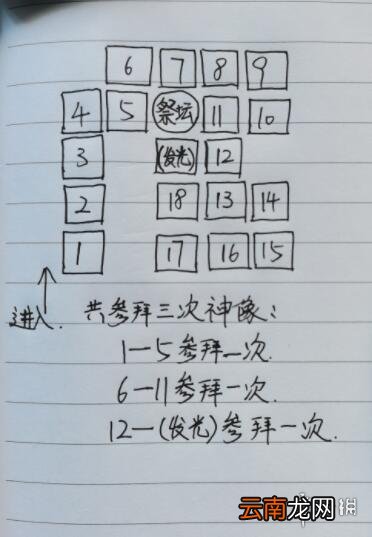 6 7 8 9
4 5 祭坛 11 10
3 (发光) 12
2 18 13 14
1 17 16 15
进入.
共参拜三次神像:
1—5参拜一次.
6—11参拜一次.
12—(发光)参拜一次.
云南龙网